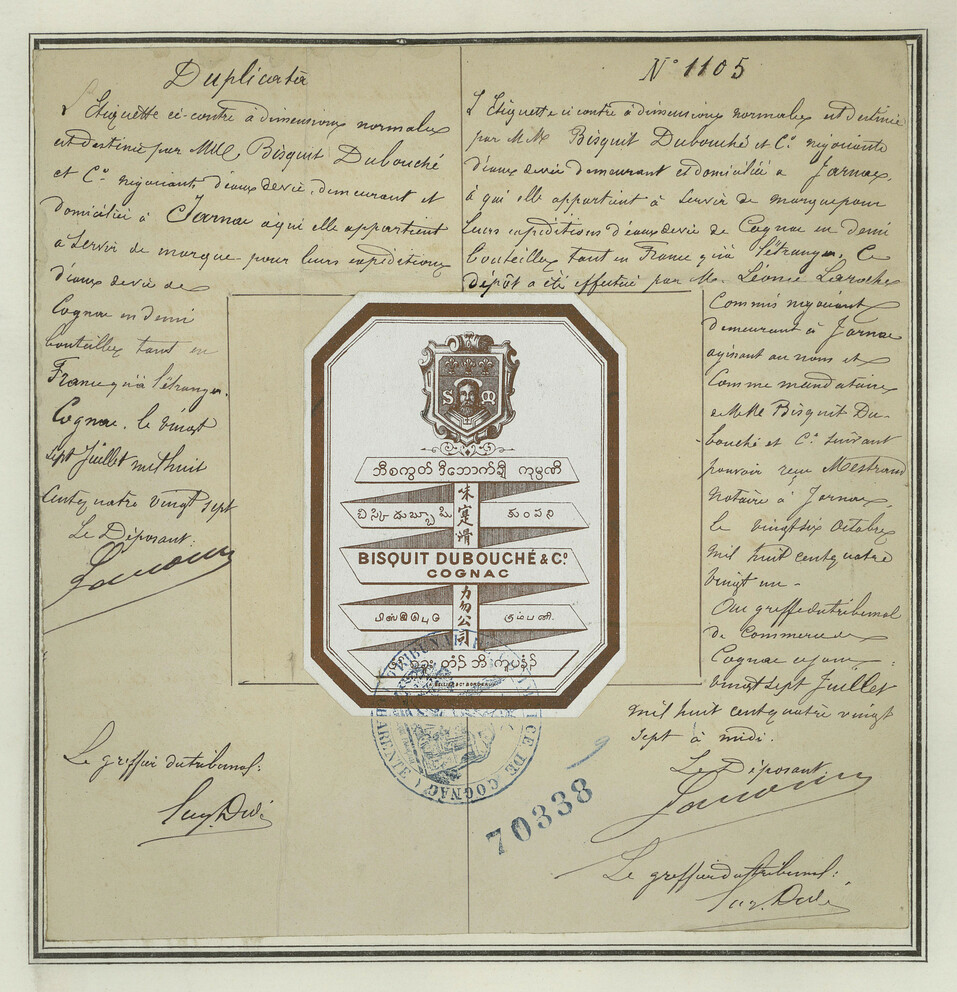 Duplicata
L'Etiquette ci-contre à dimensions normales
est destinée par MM Bisquit Dubouché
et Cº négociants d'eaux de vie, demeurant et
domiciliés à Jarnac à qui elle appartient
à servir de marque pour leurs expéditions
d'eaux de vie de
Cognac en demi
bouteilles tant en
France qu'à l'étranger.
Cognac, le vingt
sept Juillet mil huit
cent quatre vingt sept
Le Déposant:
Le greffier du tribunal:
Nº 1105
L'Etiquette ci contre à dimensions normales est destinée
par MM Bisquit Dubouché et Cº négociants
d'eaux de vie demeurant et domiciliés à Jarnac,
à qui elle appartient à servir de marque pour
leurs expéditions d'eaux de vie de Cognac en demi
bouteilles tant en France qu'à l'étranger. Ce
dépôt a été effectué par M. Léonce Laroche
Commis négociant
demeurant à Jarnac
agissant au nom et
comme mandataire
de MM Bisquit Du-
bouché et Cº suivant
pouvoir reçu Mestraud
Notaire à Jarnac
le vingt six Octobre
mil huit cent quatre
vingt un -
Au greffe du tribunal
de Commerce de
Cognac ce jour
vingt sept Juillet
mil huit cent quatre vingt
sept à midi.
Le Déposant
Le greffier du tribunal:
S M
BISQUIT DUBOUCHÉ & Cº
COGNAC
公司
கும்பனி.
TRIBUNAL
CE DE COGNAC
CHARENTE
70338